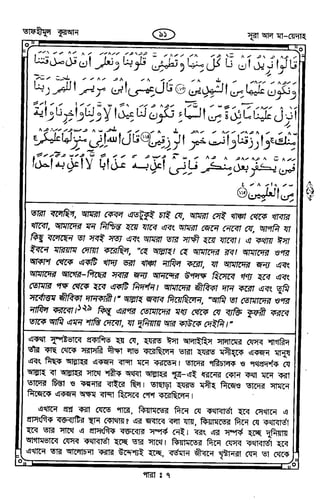 তাফহীমুল কুরআন
৯১
সূরা আল মা-য়েদাহ
قَالُوا نُرِيدُ أَنْ نَّأْكُلَ مِنْهَا وَتَطْمَئِنَّ قُلُوبُنَا وَنَعْلَمَ أَنْ قَدْ صَدَقْتَنَا
وَنَكُونَ عَلَيْهَا مِنَ الشّٰهِدِينَ ﴿١١٣﴾ قَالَ عِيسَى ابْنُ مَرْيَمَ اللّٰهُمَّ رَبَّنَا
أَنْزِلْ عَلَيْنَا مَائِدَةً مِّنَ السَّمَاءِ تَكُونُ لَنَا عِيدًا لِّأَوَّلِنَا وَآخِرِنَا وَآيَةً
مِّنْكَ وَارْزُقْنَا وَأَنْتَ خَيْرُ الرّٰزِقِينَ ﴿١١٤﴾ قَالَ اللّٰهُ إِنِّي مُنَزِّلُهَا عَلَيْكُمْ
فَمَنْ يَّكْفُرْ بَعْدُ مِنْكُمْ فَإِنِّي أُعَذِّبُهُ عَذَابًا لَّا أُعَذِّبُهُ أَحَدًا
مِّنَ الْعٰلَمِينَ ﴿١١٥﴾
তারা বলেছিল, আমরা কেবল এতটুকুই চাই যে, আমরা সেই খাঞ্চা থেকে খাবার
খাবো, আমাদের মন নিশ্চিন্ত হয়ে যাবে এবং আমরা জেনে নেবো যে, আপনি যা
কিছু বলেছেন তা সবই সত্য এবং আমরা তার সাক্ষী হয়ে যাবো। এ কথায় ঈসা
ইবনে মারয়াম দোয়া করেছিল, "হে আল্লাহ! হে আমাদের রব! আমাদের ওপর
আকাশ থেকে একটি খাদ্য ভরা খাঞ্চা নাযিল করো, যা আমাদের জন্য এবং
আমাদের আগের-পিছের সবার জন্য আনন্দের উপলক্ষ হিসেবে গণ্য হবে এবং
তোমার পক্ষ থেকে হবে একটি নিদর্শন। আমাদের জীবিকা দান করো এবং তুমি
সর্বোত্তম জীবিকা দানকারী।" আল্লাহ জবাব দিয়েছিলেন, "আমি তা তোমাদের ওপর
নাযিল করবো।১২৯ কিন্তু এরপর তোমাদের মধ্য থেকে যে ব্যক্তি কুফরী করবে
তাকে আমি এমন শাস্তি দেবো, যা দুনিয়ায় আর কাউকে দেইনি।"
একথা সুস্পষ্টভাবে প্রকাশিত হয় যে, হযরত ঈসা আলাইহিস সালামের যেসব শাগরিদ
তাঁর কাছ থেকে সরাসরি দীক্ষা লাভ করেছিলেন তারা হযরত মসীহকে একজন মানুষ
এবং নিছক আল্লাহর একজন বান্দা মনে করতেন। তাদের পরিচালক ও পথপ্রদর্শক যে
আল্লাহ বা আল্লাহর সাথে শরীক অথবা আল্লাহর পুত্র-এই ধরনের কোন কথা মনে করা
তাদের চিন্তা ও কল্পনার বাইরে ছিল। তাছাড়া হযরত মসীহ নিজেও তাদের সামনে
নিজেকে একজন অক্ষম বান্দা হিসেবে পেশ করেছিলেন।
এখানে প্রশ্ন করা যেতে পারে, কিয়ামতের দিনে যে কথাবার্তা হবে সেখানে এ
প্রাসংগিক বক্তব্যটির স্থান কোথায়? এর জবাবে বলা যায়, কিয়ামতের দিনে যে কথাবার্তা
হবে তার সাথে এ প্রাসংগিক বক্তব্যের সম্পর্ক নেই। বরং এর সম্পর্ক হচ্ছে দুনিয়ায়
আগামভাবে যেসব কথাবার্তা হচ্ছে তার সাথে। কিয়ামতের দিনে যেসব কথাবার্তা হবে
এখানে তার আলোচনা করার উদ্দেশ্যই হচ্ছে, বর্তমান জীবনে খৃস্টানরা যেন তা থেকে
পারা : ৭